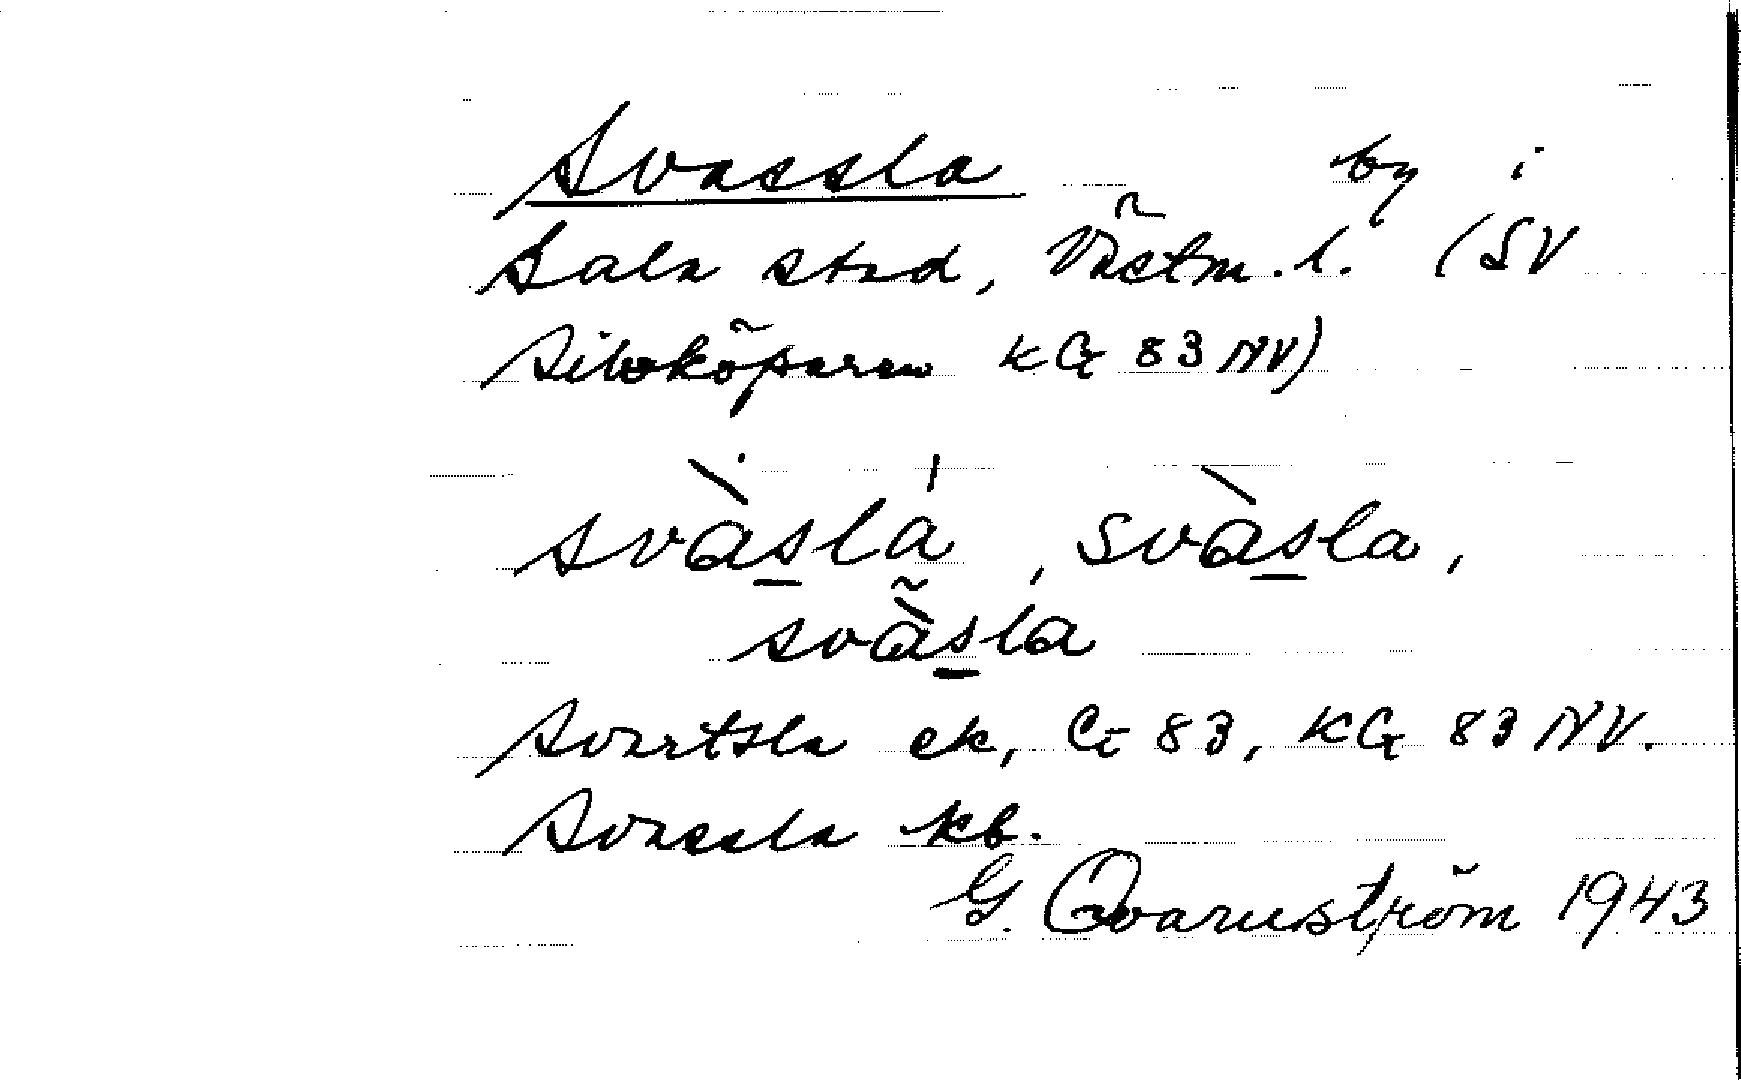 Svassla by i
Sala stad, Västm. l. (SV
Silvköparen KG 83 NV)
svàsla̍, svàsla,
svàsla
Svartsla ek, GE 83, KG 83 NV.
Svassla kb.
G. Qvarnström 1943